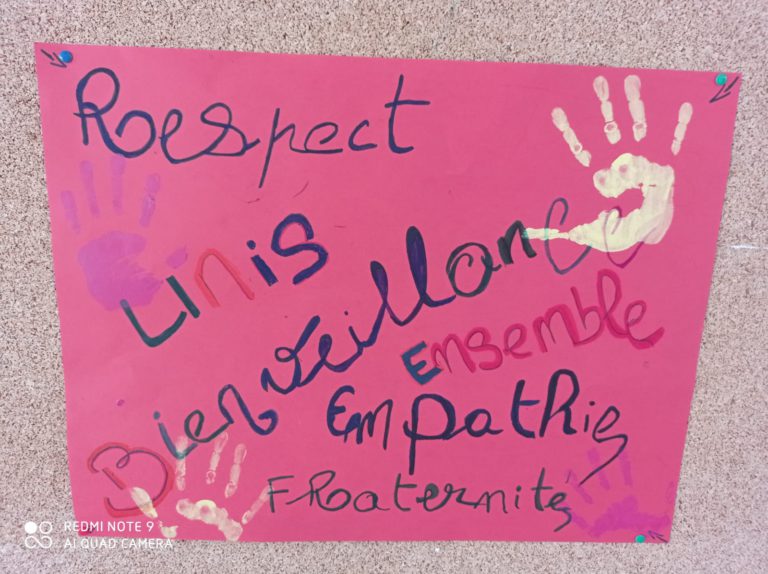 Respect
UNIS
Bienveillance
Ensemble
Empathie
FRaternité
REDMI NOTE 9
AI QUAD CAMERA